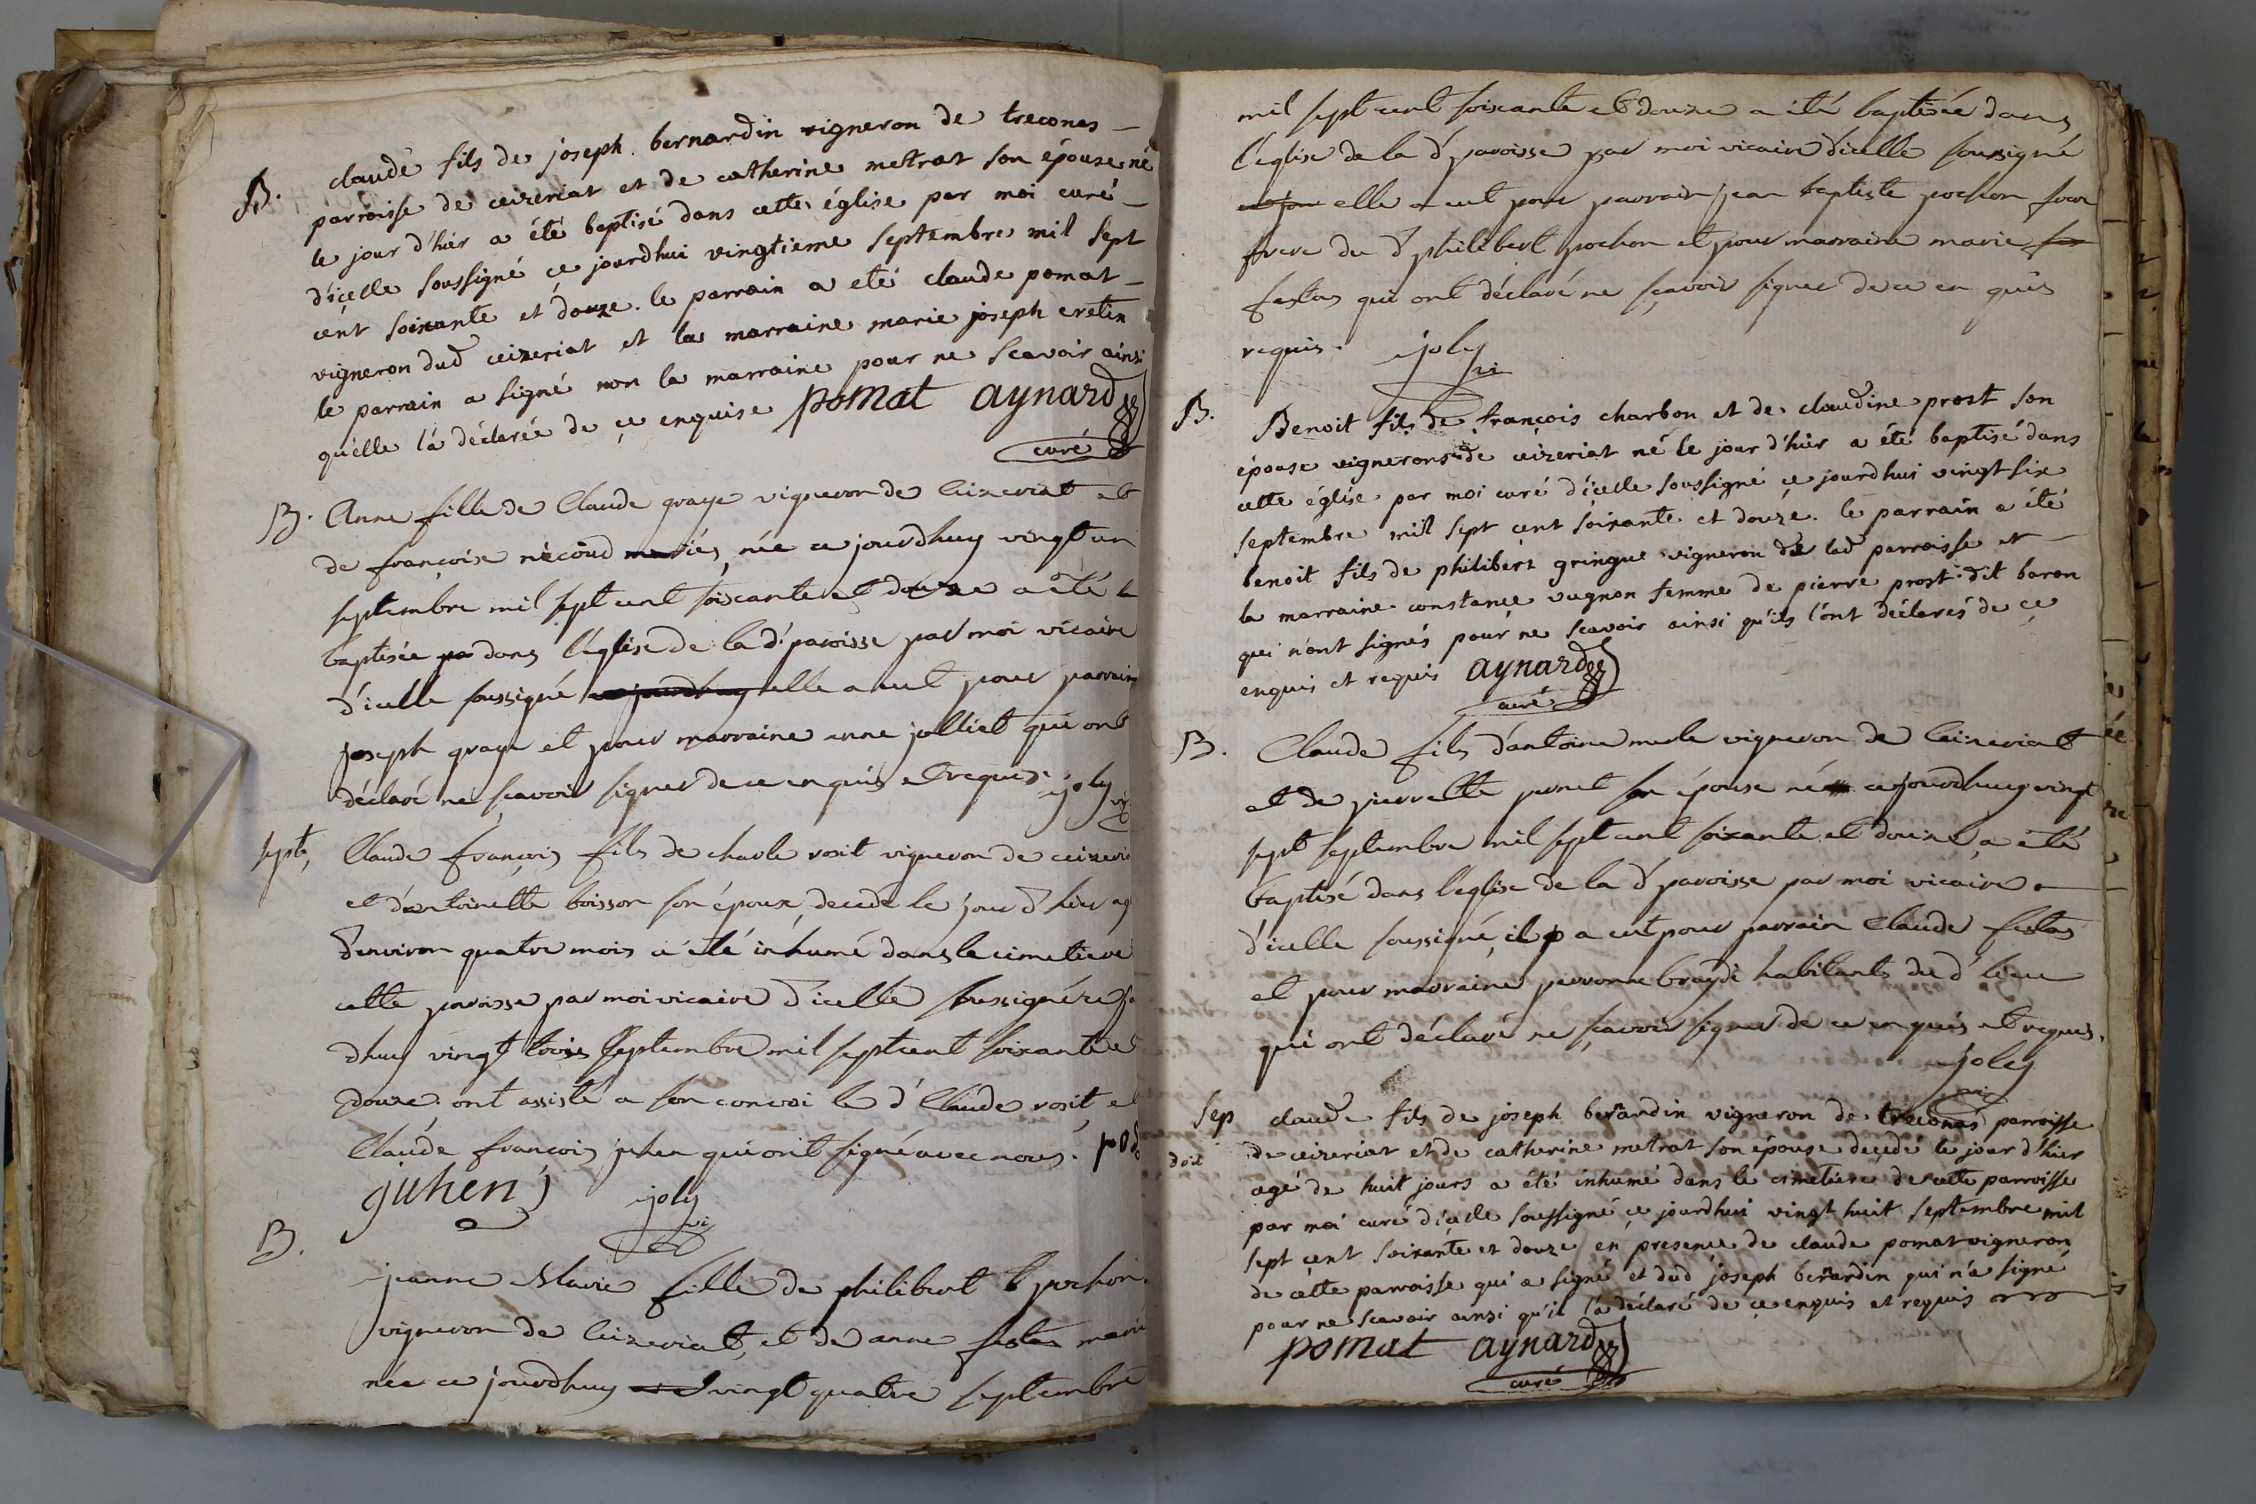 B. claude fils de joseph bernardin vigneron de treconas
parroisse de ceizeriat et de catherine metrat son épouse né
le jour d'hier a été baptisé dans cette église par moi curé
d'icelle soussigné ce jourdhui vingtieme septembre mil sept
cent soixante et douze. le parrain a eté claude pomat
vigneron dud ceizeriat et la marraine marie joseph cretin
le parrain a signé non la marraine pour ne scavoir ainsi
qu'elle l'a déclarée de ce enquise pomat aynard
curé
B. Anne fille de Claude graye vigneron de Ceizeriat et
de françoise nécoud mariés, née ce jourdhuy vingt un
septembre mil sept cent soixante et douze a été
baptisée dans l'église de la d' paroisse par moi vicaire
d'icelle soussigné ce jourdhuy elle a eut pour parrain
joseph graye et pour marraine anne jolliet qui ont
déclaré ne sçavoir signer de ce enquis et requis. joly
vi
sept, Claude françois fils de charle rosit vigneron de ceizeri
et d'antoinette boisson son épouse, decedé le jour d'hier ag
d'environ quatre mois a été inhumé dans le cimetiere
cette paroisse par moi vicaire d'icelle soussigné ce jo
dhuy vingt trois septembre mil sept cent soixante et
douze. ont assisté a son convoi le d' Claude rosit et
Claude françois juhen qui ont signé avec nous.
juhen joly
vi
B. jeanne Marie fille de philibert pochon
vigneron de Ceizeriat, et de anne festas marié
née ce jourdhuy vingt quatre septembre
mil sept cent soixante et douze a été baptisée dans
l'église de la d' paroisse par moi vicaire d'icelle soussigné
elle a eut pour parrain jean baptiste pochon
frere du d' philibert pochon et pour marraine marie
festas qui ont déclaré ne sçavoir signer de ce en quis
requis. joly
vi
B. Benoit fils de françois charbon et de claudine prost son
épouse vignerons de ceizeriat né le jour d'hier a été baptisé dans
cette église par moi curé d'icelle soussigné ce jourdhui vingt six
septembre mil sept cent soixante et douze. le parrain a été
benoit fils de philibert gringue vigneron de lad parroisse et
la marraine constance vugnon femme de pierre prost dit baron
qui n'ont signés pour ne scavoir ainsi qu'ils l'ont déclarés de ce
enquis et requis aynard
curé
B. Claude fils d'antoine merle vigneron de Ceizeriat
et de pierrette perret son épouse né ce jourdhuy vingt
sept septembre mil sept cent soixante et douze, a été
baptisé dans l'eglise de la d' paroisse par moi vicaire
d'icelle soussigné, il a eut pour parrain Claude festas
et pour marraine perronne brayds habitants du d' lieu
qui ont déclaré ne sçavoir signer de ce enquis et requis.
joly
vi
Sep claude fils de joseph berardin vigneron de treconas parroisse
de ceizeriat et de catherine metrat son épouse decedé le jour d'hier
agé de huit jours a été inhumé dans le cimetiere de cette parroisse
par moi curé d'icelle soussigné ce jourdhui vingt huit septembre mil
sept cent soixante et douze en presence de claude pomat vigneron
de cette parroisse qui a signé et dud joseph berardin qui n'a signé
pour ne scavoir ainsi qu'il l'a déclaré de ce enquis et requis
pomat aynard
curé